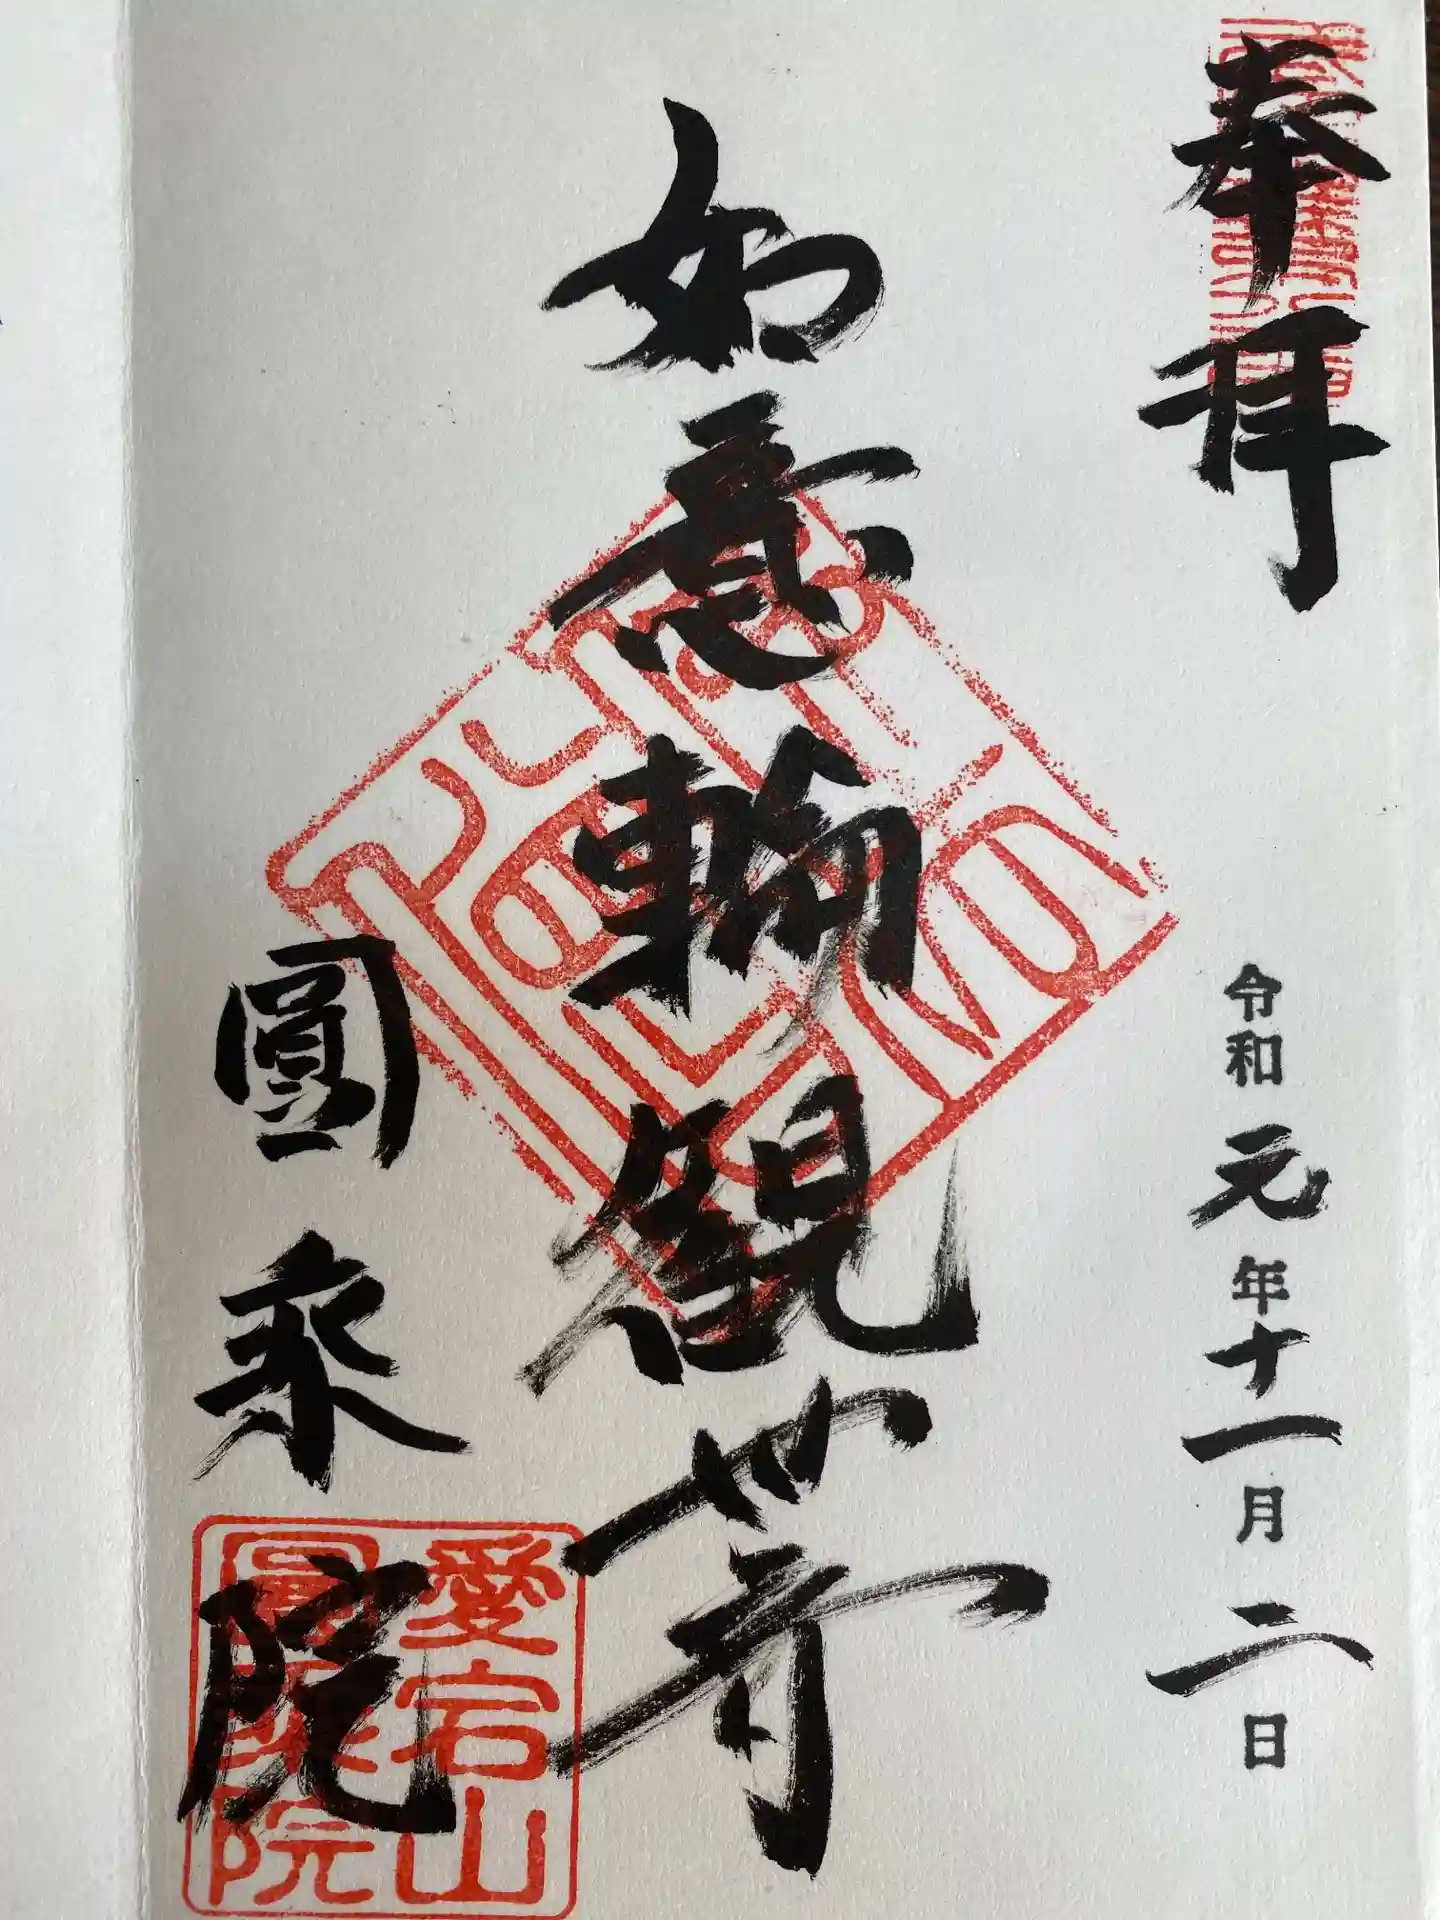 奉拝
令和元年十一月二日
如意輪観世音
圓乘院
愛宕山
圓乘院